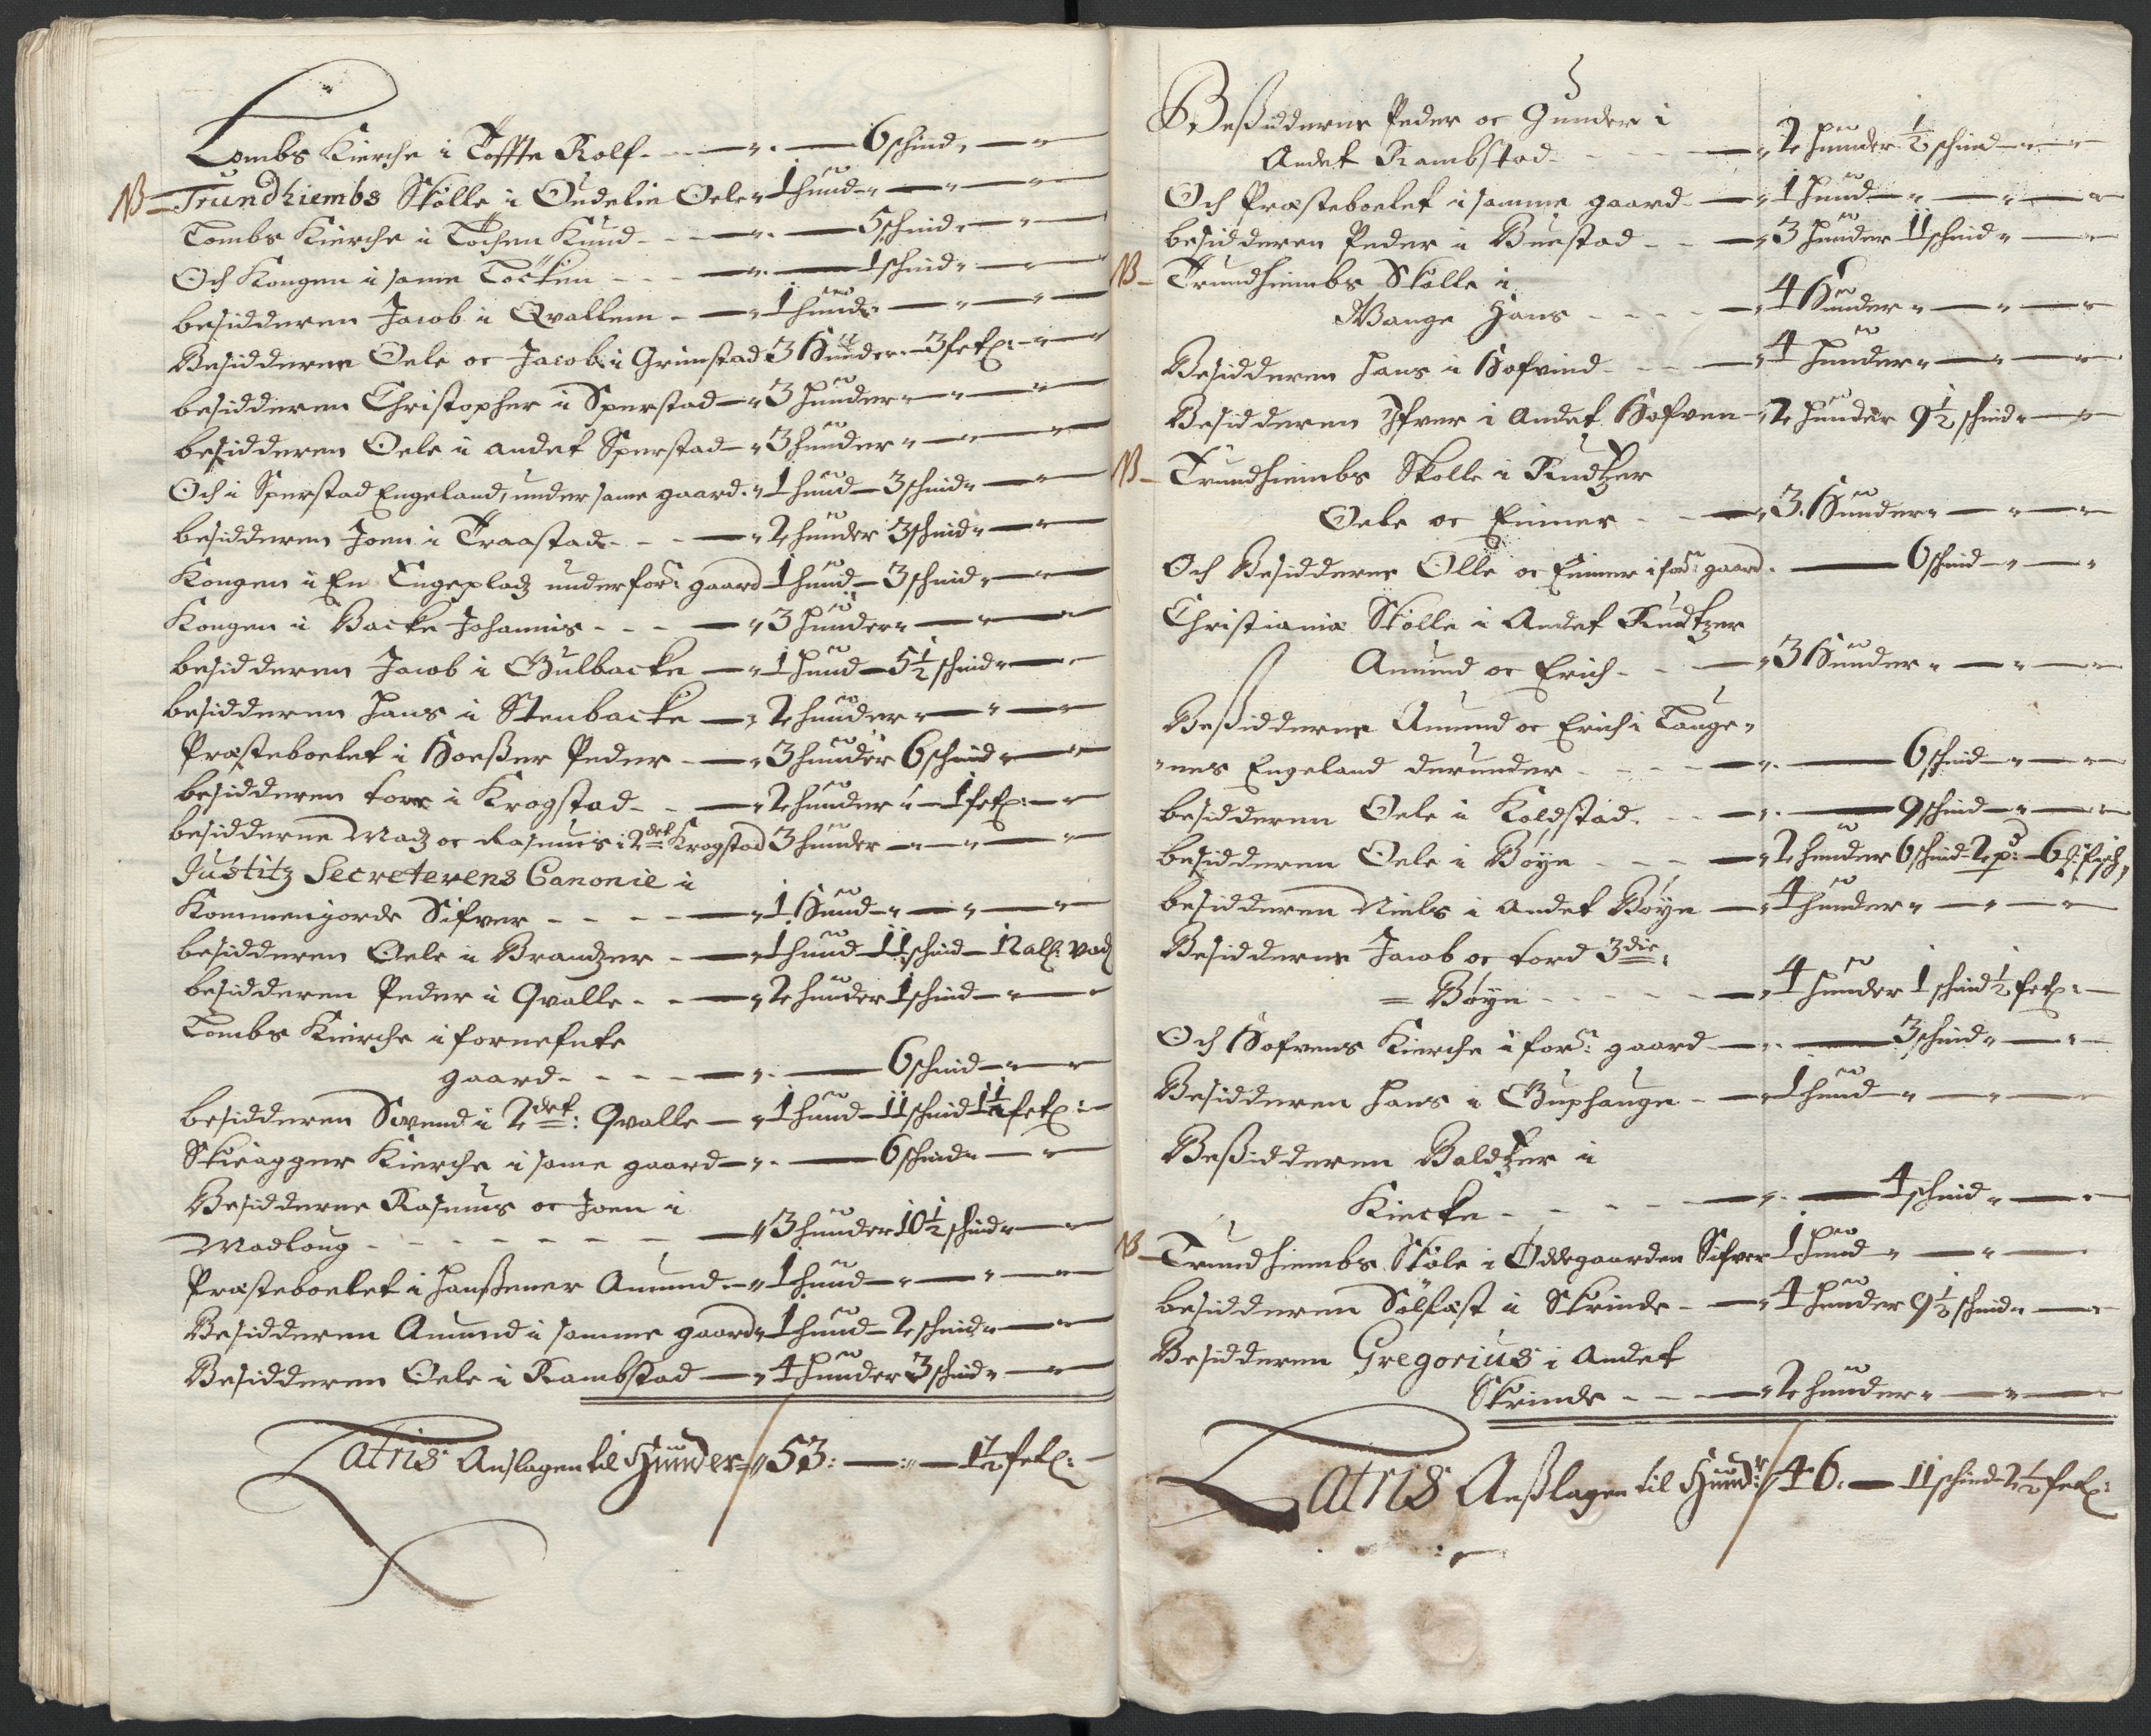 Lombs Kierche i Toffte Rolf - - 6 schind
NB Trundhiembs Skolle i Oudelie Oele 1 hund
Lombs Kierche i Lochen Knud - - 5 schind
Och Kongen i same Locken - - 1 schind
besidderen Jacob i Qvallem - 1 hund
Besidderne Oele oc Jacob i Grimstad 3 Hunder - 3 fetl:
besidderen Christopher i Sperstad 3 hunder
besidderen Oele i andet Sperstad 3 hunder
Och i Sperstad Engeland, under same gaard 1 hund 3 schind
besidderen Joen i Traastad - - 2 hunder 3 schind
Kongen i En Engepladz under for: gaard 1 hund 3 schind
Kongen i Backe Johannis - - - 3 hunder
besidderen Jacob i Gulbacke 1 hund 5½ schind
besidderen Hans i Stenbacke 2 hunder
Præsteboelet i Hoeßer Peder 3 hunder 6 schind
besidderen Tore i Krogstad - - 2 hunder 1 fetl:
besidderne Madz oc Rasmus i 2det Krogstad 3 hunder
Justitz Secreterens Canonie i
Kommenjorde Sifver - - - - 1 Hund
besidderen Oele i Brandzer 1 hund 11 schind 12 all: vad
besidderen Peder i Qvalle - - 2 hunder 1 schind
Lombs Kierche i fornefnte
gaard - - - - 6 schind
besidderen Svend i 2det: Qvalle 1 hund 11 schind 1½ fetl:
Skieagger Kierche i same gaard 6 schind
Besidderne Rasmus oc Joen i
Madloug - - - - - - - 3 hunder 10½ schind
Præsteboelet i Hanßener Amund 1 hund
Besidderen Amund i samme gaard 1 hund 2 schind
Besidderen Oele i Rambstad 4 hunder 3 schind
Latris Anslagen til Hunder 53: - 1½ fetl:
Beßidderne Peder oc Gunder i
Andet Rambstad - - - - 2 hunder ½ schind
Och Præsteboelet i samme gaard 1 hund
besidderen Peder i Buestad - - 3 hunder 11 schind
NB Trundhiembs Skolle i
Wange Hans - - - - 4 Hunder
Besidderen Hans i Hofvind - - - 4 hunder
Besidderen Ifver i Andet Hofven 2 hunder 9½ schind
NB Trundhiembs Skolle i Rudtzer
Oele oc Einner - - 3 Hunder
Och Besidderne Olle oc Einner i for: gaard 6 schind
Christiania Skolle i Andet Rudtzer
Amund oc Erich - - 3 Hunder
Beßidderne Amund oc Erich i Tange-
-nes Engeland derunder - - - 6 schind
besidderen Oele i Koldstad - - 9 schind
besidderen Oele i Böye - - - 2 hunder 6 schind 2 pd:
besidderen Niels i andet Böye 4 hunder
Besidderne Jacob oc Tord 3die:
= Böye - - - - 4 hunder 1 schind ½ fetl:
Och Hofvens Kierche i for: gaard 3 schind
Besidderen Hans i Guphauge - 1 hund
Beßidderen Baldtzer i
Kiecke - - - - 4 schind
NB Trundhiembs Skole i Ödegaarden Sifver 1 hund
besidderen Sölfast i Skrinde - 4 hunder 9½ schind
Besidderen Gregorius i Andet
Skrinde - - 2 hunder
Latris Anßlagen til Hund: 46: 11 schind 2½ fetl: